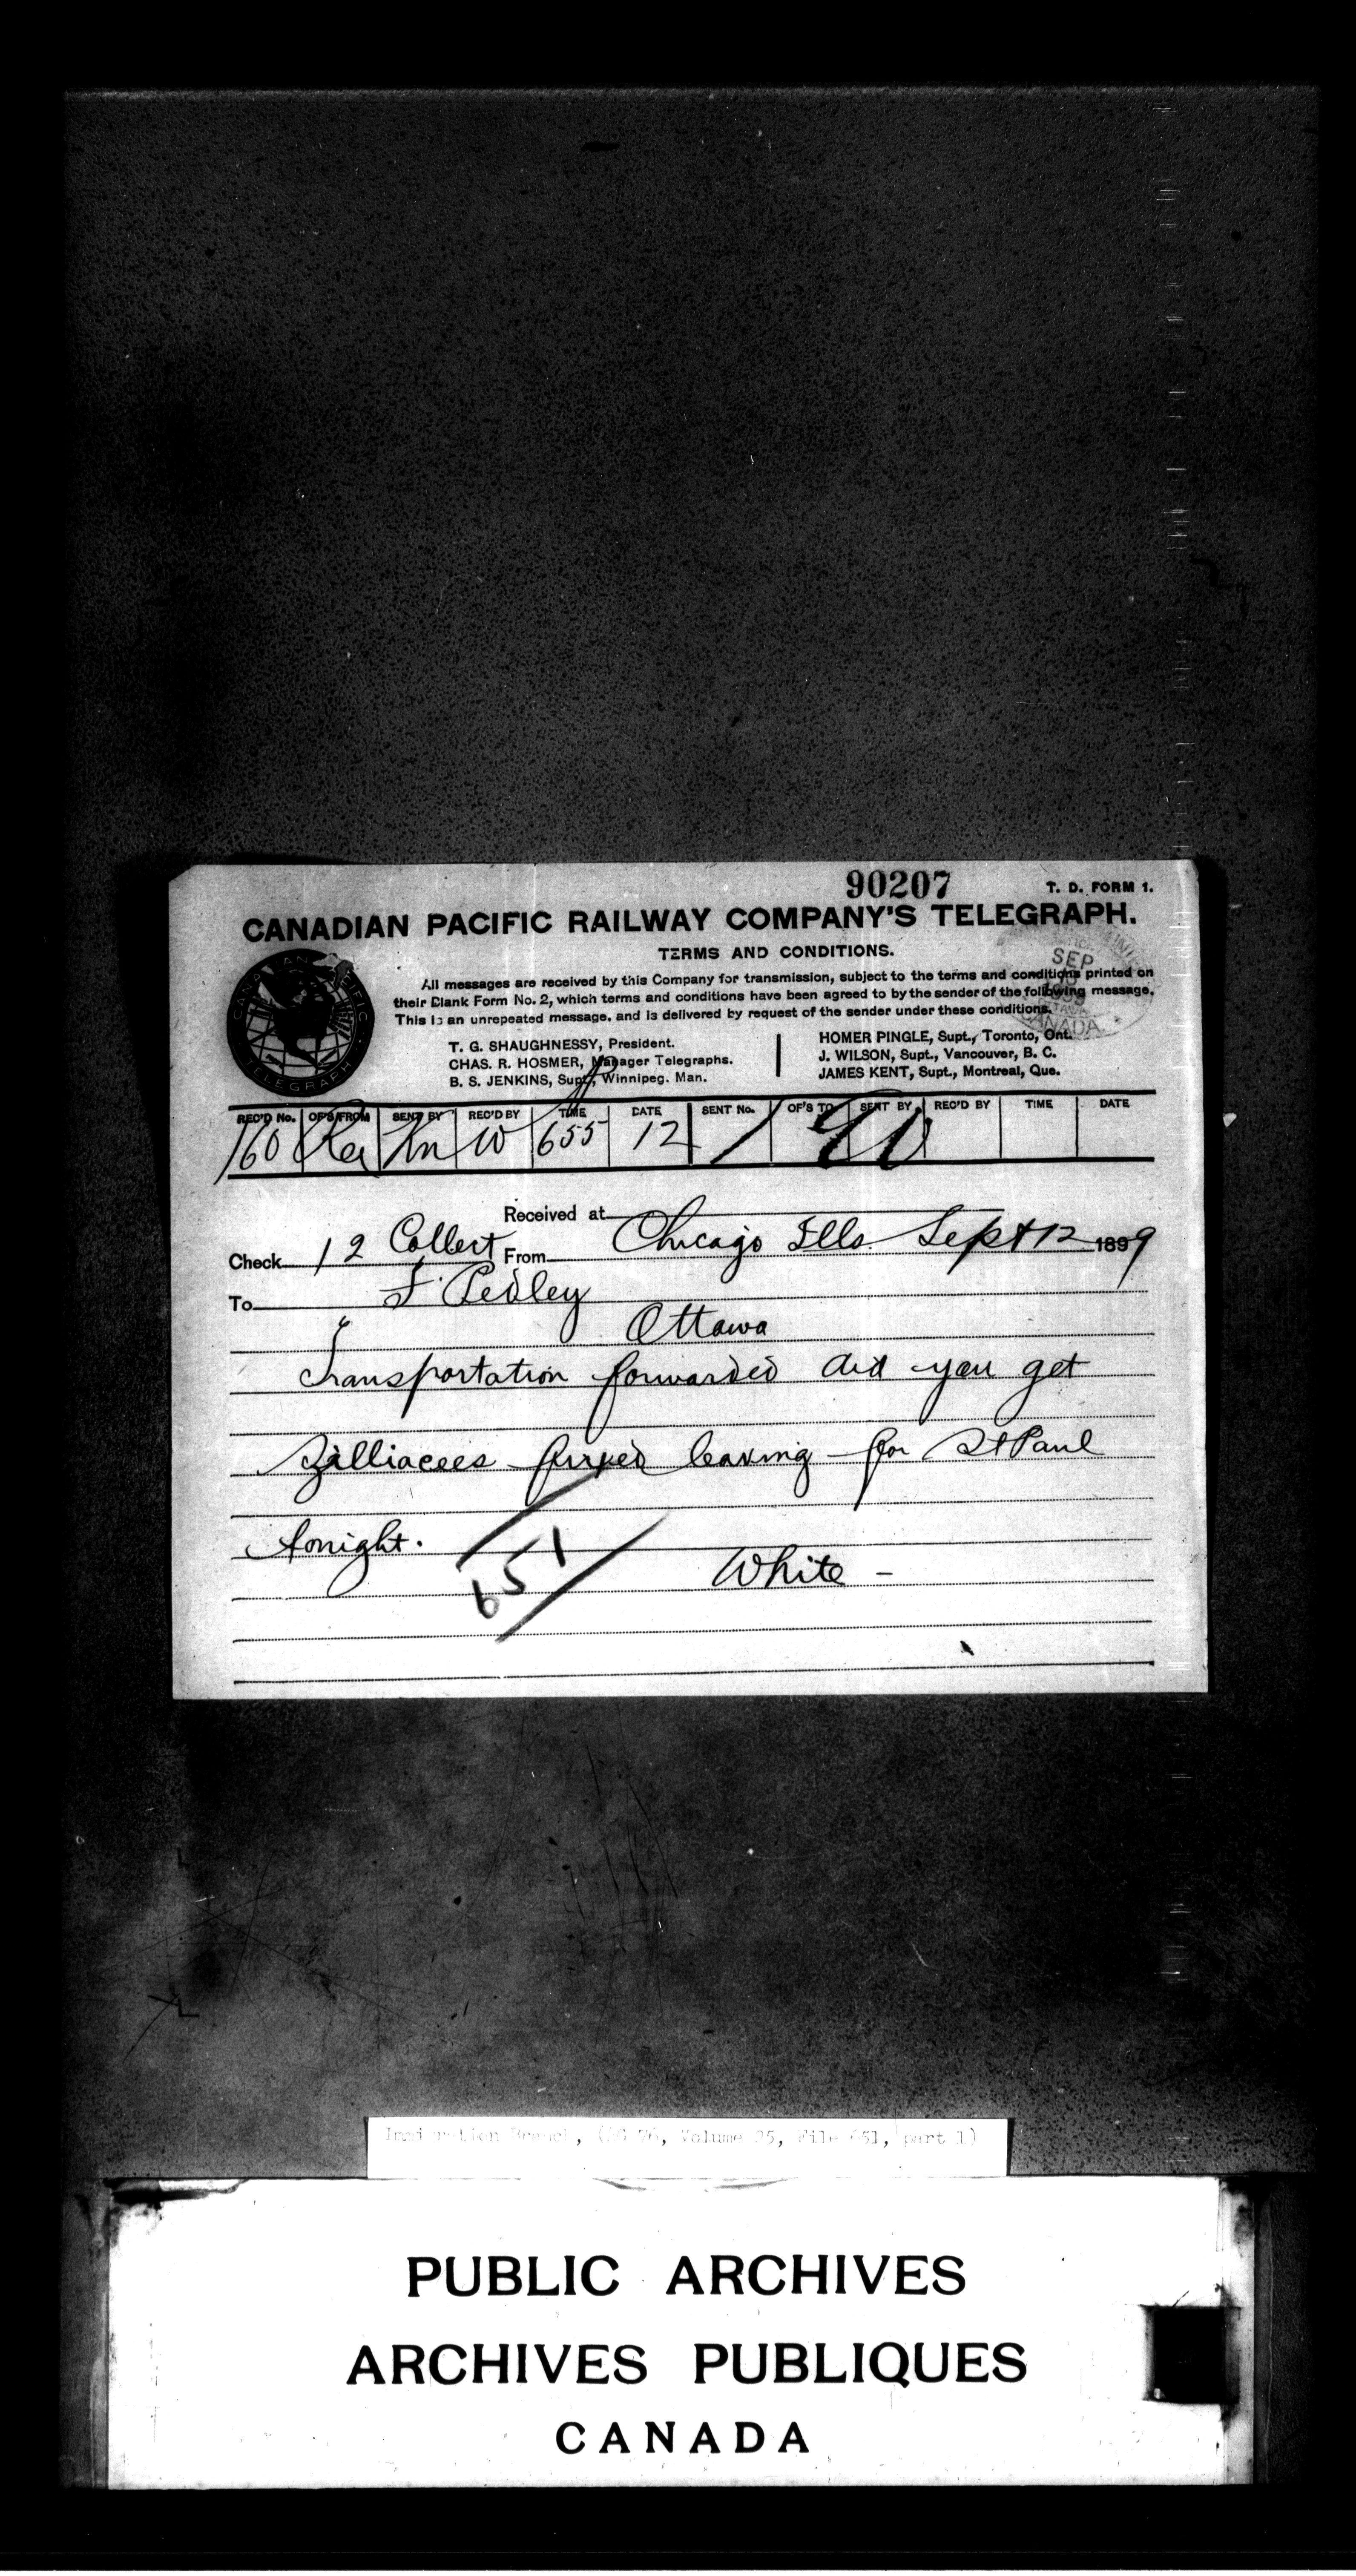 90207
T. D. FORM 1.
CANADIAN PACIFIC RAILWAY COMPANY'S TELEGRAPH.
TERMS AND CONDITIONS.
All messages are received by this Company for transmission, subject to the terms and conditions printed on
their Blank Form No. 2, which terms and conditions have been agreed to by the sender of the following message.
This is an unrepeated message, and is delivered by request of the sender under these conditions.
T. G. SHAUGHNESSY, President.
CHAS. R. HOSMER, Manager Telegraphs.
B. S. JENKINS, Supt., Winnipeg. Man.
HOMER PINGLE, Supt., Toronto, Ont.
J. WILSON, Supt., Vancouver, B. C.
JAMES KENT, Supt., Montreal, Que.
SEP
CANADA
CANADIAN PACIFIC TELEGRAPH
REC'D No. OF'S FROM SENT BY REC'D BY TIME DATE SENT No. OF'S TO SENT BY REC'D BY TIME DATE
160 W 655 12
Received at
Check 12 Collect From Chicago Ills. Sept 12 1899
To F. Pedley
Ottawa
Transportation forwarded did you get
Zilliacees leaving for St Paul
tonight.
651
White -
Immigration Branch, (RG 76, Volume 25, File 651, part 1)
PUBLIC ARCHIVES
ARCHIVES PUBLIQUES
CANADA